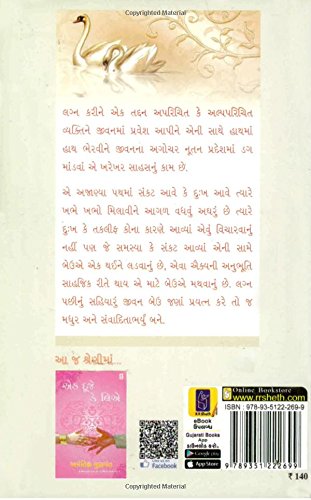 લગ્ન કરીને એક તદ્દન અપરિચિત કે અલ્પપરિચિત
વ્યક્તિને જીવનમાં પ્રવેશ આપીને એની સાથે હાથમાં
હાથ ભેરવીને જીવનના અગોચર નૂતન પ્રદેશમાં ડગ
માંડવાં એ ખરેખર સાહસનું કામ છે.
એ અજાણ્યા પથમાં સંકટ આવે કે દુઃખ આવે ત્યારે
ખભે ખભો મિલાવીને આગળ વધવું અઘરું છે ત્યારે
દુઃખ કે તકલીફ કોના કારણે આવ્યાં એવું વિચારવાનું
નહીં પણ જે સમસ્યા કે સંકટ આવ્યાં એની સામે
બેઉએ એક થઈને લડવાનું છે, એવા ઐક્યની અનુભૂતિ
સાહજિક રીતે થાય એ માટે બેઉએ મથવાનું છે. લગ્ન
પછીનું સહિયારું જીવન બેઉ જણાં પ્રયત્ન કરે તો જ
મધુર અને સંવાદિતાભર્યું બને.
આ જ શ્રેણીમાં...
એક દૂજે
કે લિએ
Facebook
eBook
ઉપલબ્ધ
Gujarati Books
App
ડાઉનલોડ કરો.
Google play
App Store
Online Bookstore
www.rrsheth.com
ISBN : 978-93-5122-269-9
9789351222699
₹ 140